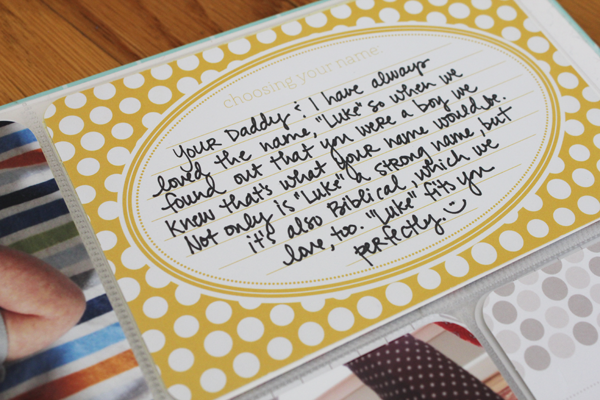 choosing your name:
Your Daddy & I have always
loved the name, "Luke" so when we
found out that you were a boy we
knew that's what your name would be.
Not only is "Luke" a strong name, but
it's also Biblical, which we
love, too. "Luke" fits you
perfectly. :)